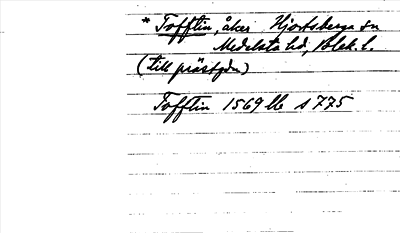 * Tofftin, åker Hjortsberga sn
Medelsta hd, Blek. l.
(till prästgdn)
Tofftin 1569 bl s 775